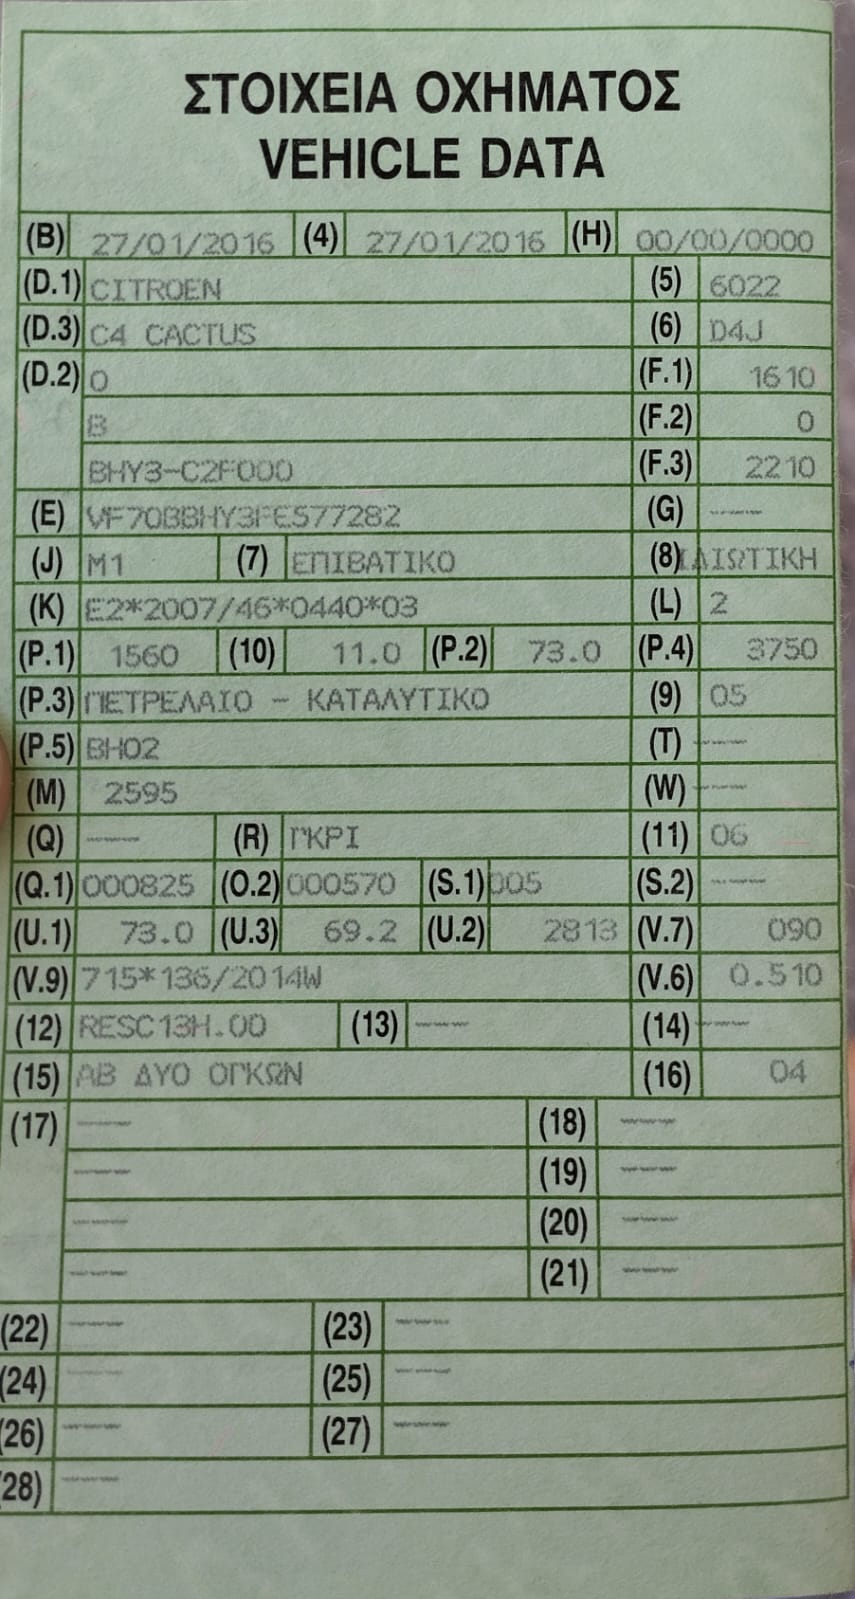 ΣΤΟΙΧΕΙΑ ΟΧΗΜΑΤΟΣ
VEHICLE DATA
(B) 27/01/2016 (4) 27/01/2016 (H) 00/00/0000
(D.1) CITROEN (5) 6022
(D.3) C4 CACTUS (6) D4J
(D.2) 0 (F.1) 1610
B (F.2) 0
BHY3-C2F000 (F.3) 2210
(E) VF70BBHY3FE577282 (G) ---
(J) M1 (7) ΕΠΙΒΑΤΙΚΟ (8) ΙΔΙΩΤΙΚΗ
(K) E2*2007/46*0440*03 (L) 2
(P.1) 1560 (10) 11.0 (P.2) 73.0 (P.4) 3750
(P.3) ΠΕΤΡΕΛΑΙΟ - ΚΑΤΑΛΥΤΙΚΟ (9) 05
(P.5) BH02 (T) ---
(M) 2595 (W) ---
(Q) --- (R) ΓΚΡΙ (11) 06
(Q.1) 000825 (O.2) 000570 (S.1) 005 (S.2) ---
(U.1) 73.0 (U.3) 69.2 (U.2) 2813 (V.7) 090
(V.9) 715*136/2014W (V.6) 0.510
(12) RESC13H.00 (13) --- (14) ---
(15) ΑΒ ΔΥΟ ΟΓΚΩΝ (16) 04
(17) --- (18) ---
--- (19) ---
--- (20) ---
--- (21) ---
(22) --- (23) ---
(24) --- (25) ---
(26) --- (27) ---
(28) ---